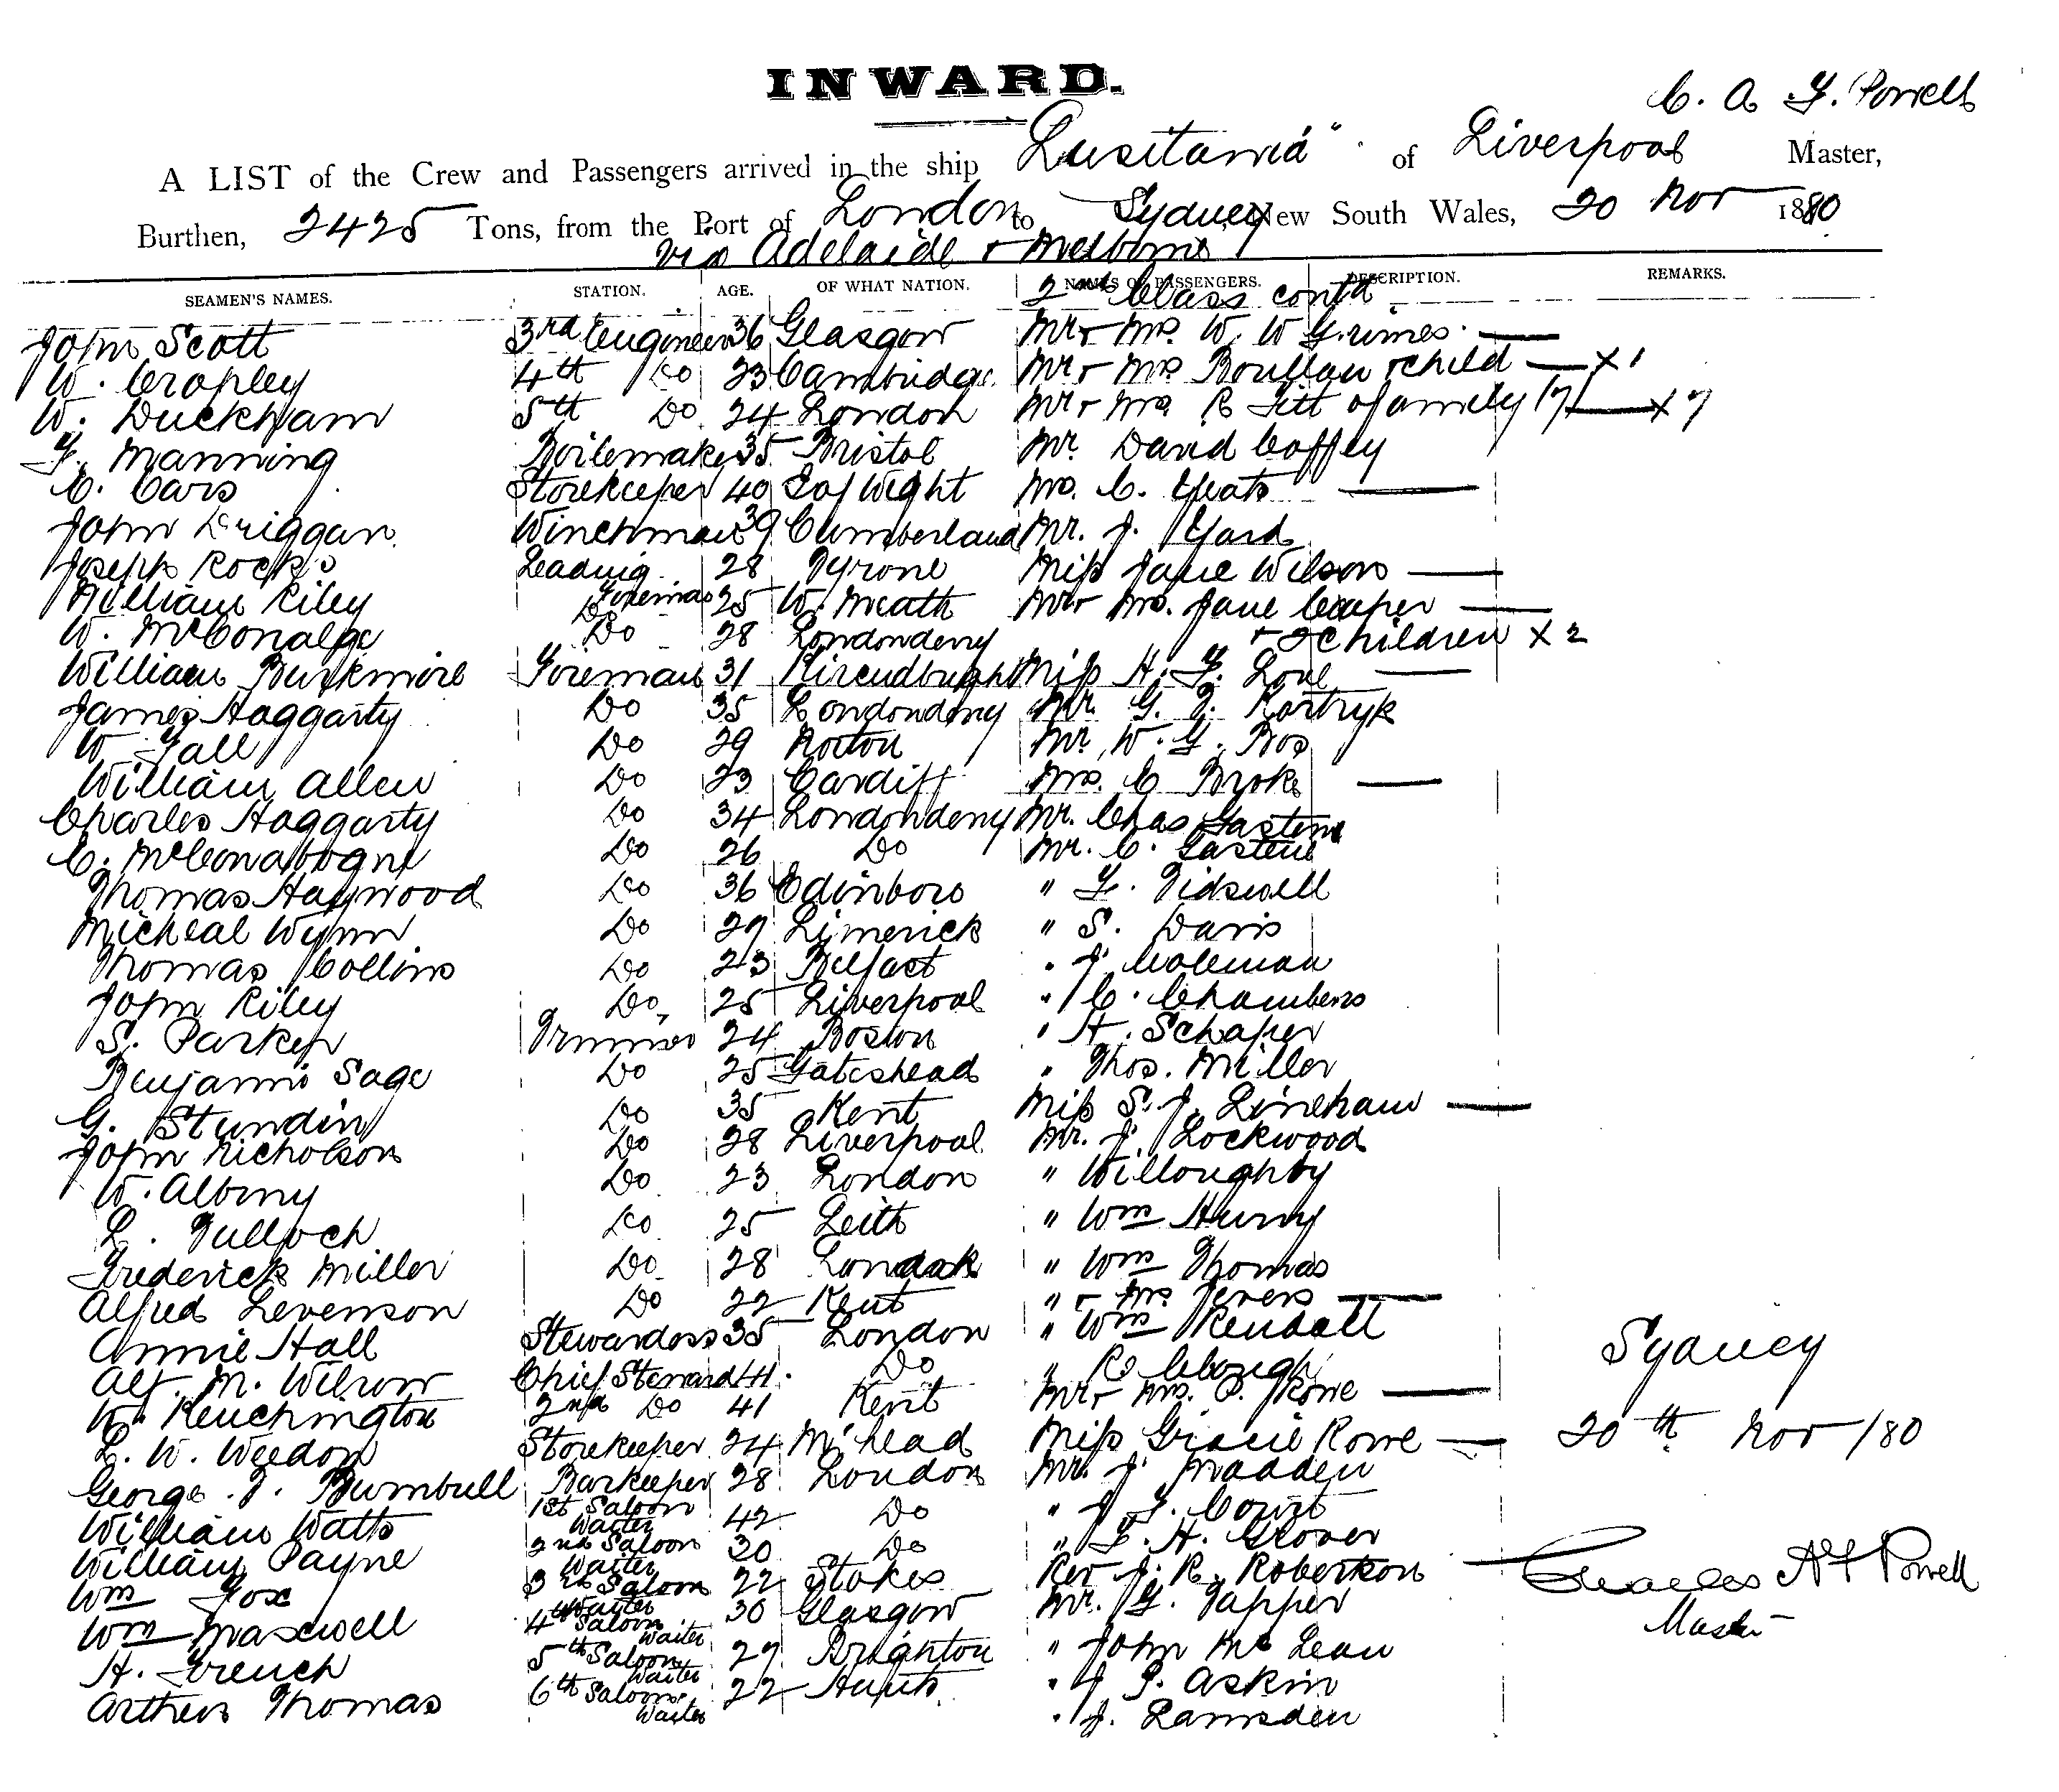 INWARD.
C. A. F. Powell
A LIST of the Crew and Passengers arrived in the ship Lusitania" of Liverpool Master,
Burthen, 2425 Tons, from the Port of London to Sydney, New South Wales, 20 Nov 1880
via Adelaide & Melborne
SEAMEN'S NAMES. STATION. AGE. OF WHAT NATION. NAMES OF PASSENGERS. DESCRIPTION. REMARKS.
2nd Class contd
John Scott 3rd Engineer 36 Glasgow Mr & Mrs W. W Grimes
W. Cropley 4th Do 23 Cambridge Mr & Mrs & child X 1
W. Duckham 5th Do 24 London Mr & Mrs R Titt & family (7) X 7
F. Manning Boilemaker 35 Bristol Mr. David Coffey
C. Cars Storekeeper 40 I of Wight Mrs. C. Yeats
John Driggan Winchman 39 Cumberland Mr. J. Yard
Joseph Rocks Leading Foreman 28 Tyrone Miss Jane Wilson
William Riley Do 25 W. Meath Mr & Mrs. Jane Caper
W. Do 28 Londonderry & 2 Children X 2
William Burkmire Foreman 31 Kircudbright Miss H. F. Love
James Haggarty Do 35 Londonderry Mr. G. T. Kortryk
W. Gall Do 29 Mr. W. G. Bos
William Allen Do 23 Cardiff Mrs. C Broke
Charles Haggarty Do 34 Londonderry Mr. Chas Gastene
C. McConabogne Do 26 Do Mr. C. Gastene
Thomas Haywood Do 36 Edinboro " F. Tidswell
Micheal Wynn Do 27 Limerick " S. Davis
Thomas Collins Do 23 Belfast " J. Coleman
John Riley Do 25 Liverpool " C. Chambers
S. Parker Trimmer 24 Boston " H. Schaper
Benjamin Sage Do 25 Gateshead " Thos. Miller
G. Stundin Do 35 Kent Miss S. J. Lineham
John Nicholson Do 28 Liverpool Mr. J. Lockwood
W. Albiny Do 23 London " Willoughby
L. Tulloch Do 25 Leith " Wm Hurry
Frederick Miller Do 28 London " Wm Thomas
Alfred Levenson Do 22 Kent " & Mrs Jevers
Annie Hall Stewardess 35 London " Wm Kendall
Alf. M. Wilson Chief Steward 41 Do " R. Clough
W. Kenchington 2nd Do 41 Kent Mr & Mrs. P. Rowe
L. W. Weedon Storekeeper 24 M'head Miss Gracie Rowe
George T. Burnbull Barkeeper 28 London Mr. J. Madden
William Watts 1st Saloon Waiter 42 Do " J. F. Court
William Payne 2nd Saloon Waiter 30 Do " F. H. Grover
Wm Fox 3rd Saloon Waiter 22 Stokes Rev J. R. Robertson
Wm Maxwell 4th Saloon Waiter 30 Glasgow Mr. G. Tapper
H. French 5th Saloon Waiter 27 Brighton " John McLean
Arthur Thomas 6th Saloon Waiter 22 Hunts " J. P. Askin
" J. Lamsden
Sydney
20th Nov /80
Charles A F Powell
Master